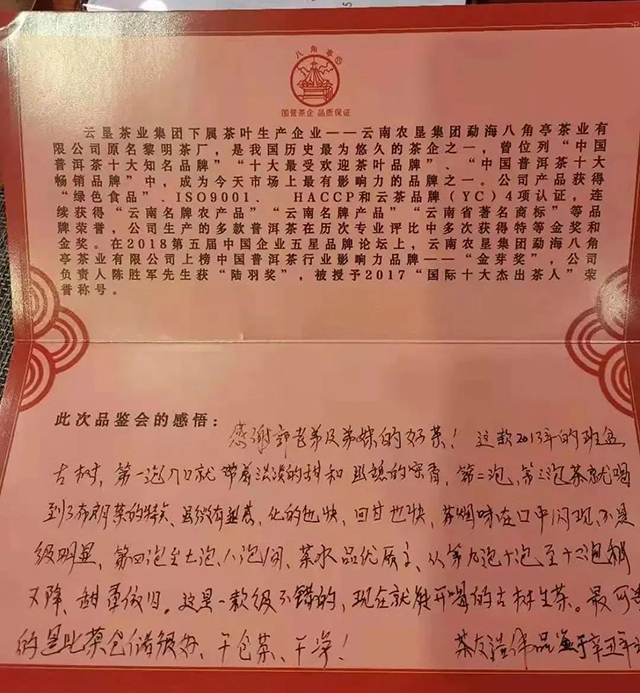 八角亭®
国营茶企 品质保证
云垦茶业集团下属茶叶生产企业——云南农垦集团勐海八角亭茶业有
限公司原名黎明茶厂，是我国历史最为悠久的茶企之一，曾位列“中国
普洱茶十大知名品牌”“十大最受欢迎茶叶品牌”、“中国普洱茶十大
畅销品牌”中，成为今天市场上最有影响力的品牌之一。公司产品获得
“绿色食品”、ISO9001、 HACCP和云茶品牌（YC）4项认证，连
续获得“云南名牌农产品”“云南名牌产品”“云南省著名商标”等品
牌荣誉，公司生产的多款普洱茶在历次专业评比中多次获得特等金奖和
金奖。在2018第五届中国企业五星品牌论坛上，云南农垦集团勐海八角
亭茶业有限公司上榜中国普洱茶行业影响力品牌——“金芽奖”，公司
负责人陈胜军先生获“陆羽奖”，被授予2017“国际十大杰出茶人”荣
誉称号。
此次品鉴会的感悟：
感谢郭老弟及弟妹的好茶！这款2013年的班盆
古树，第一泡入口就带着淡淡的甜和 的蜜香，第二泡，第三泡茶就喝
到了布朗茶的特点，虽然有苦底，化的也快，回甘也快，茶烟味在口中闪现，不是
级明显，第四泡至七泡、八泡间，茶水品优厚之，从第九泡十泡至十二泡稍
又降，甜柔依旧。这是一款级不错的，现在就能开喝的古树生茶。最可
的是此茶仓储级好，干仓茶、干净！
茶友 伟品鉴于辛丑年